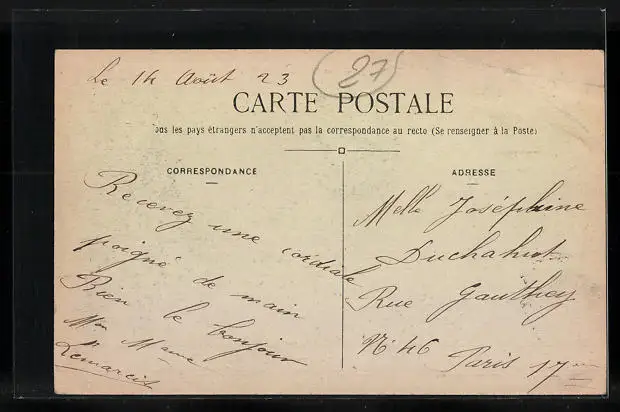 Le 14 Août 23
27
CARTE POSTALE
ous les pays étrangers n'acceptent pas la correspondance au recto (Se renseigner à la Poste)
CORRESPONDANCE
Recevez une cordiale
poigné de main
Bien le bonjour
Mme
ADRESSE
Melle Joséphine
Rue Gauthey
N° 46 Paris 17